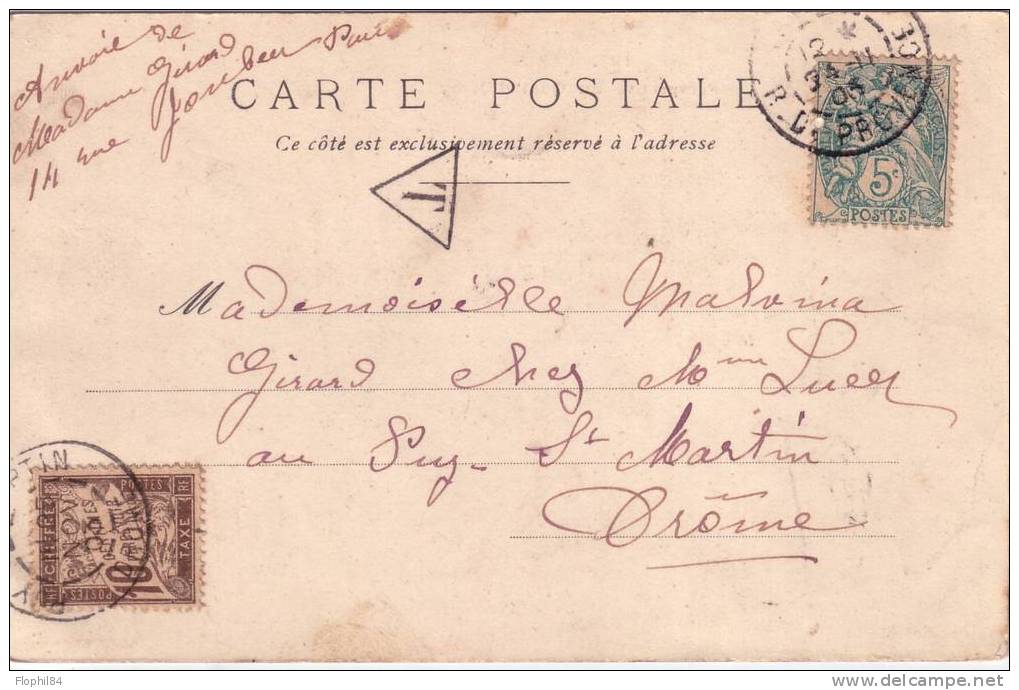 Anvoie de
Madame Girard
14 rue Joubert Paris
CARTE POSTALE
Ce côté est exclusivement réservé à l'adresse
T
R. D. PROVENCE
5c
POSTES
Mademoiselle Malvina
Girard chez Mme Lucet
au Puy St Martin
Drôme
CHIFFRE TAXE
POSTES
10
Flophil84
www.delcampe.net